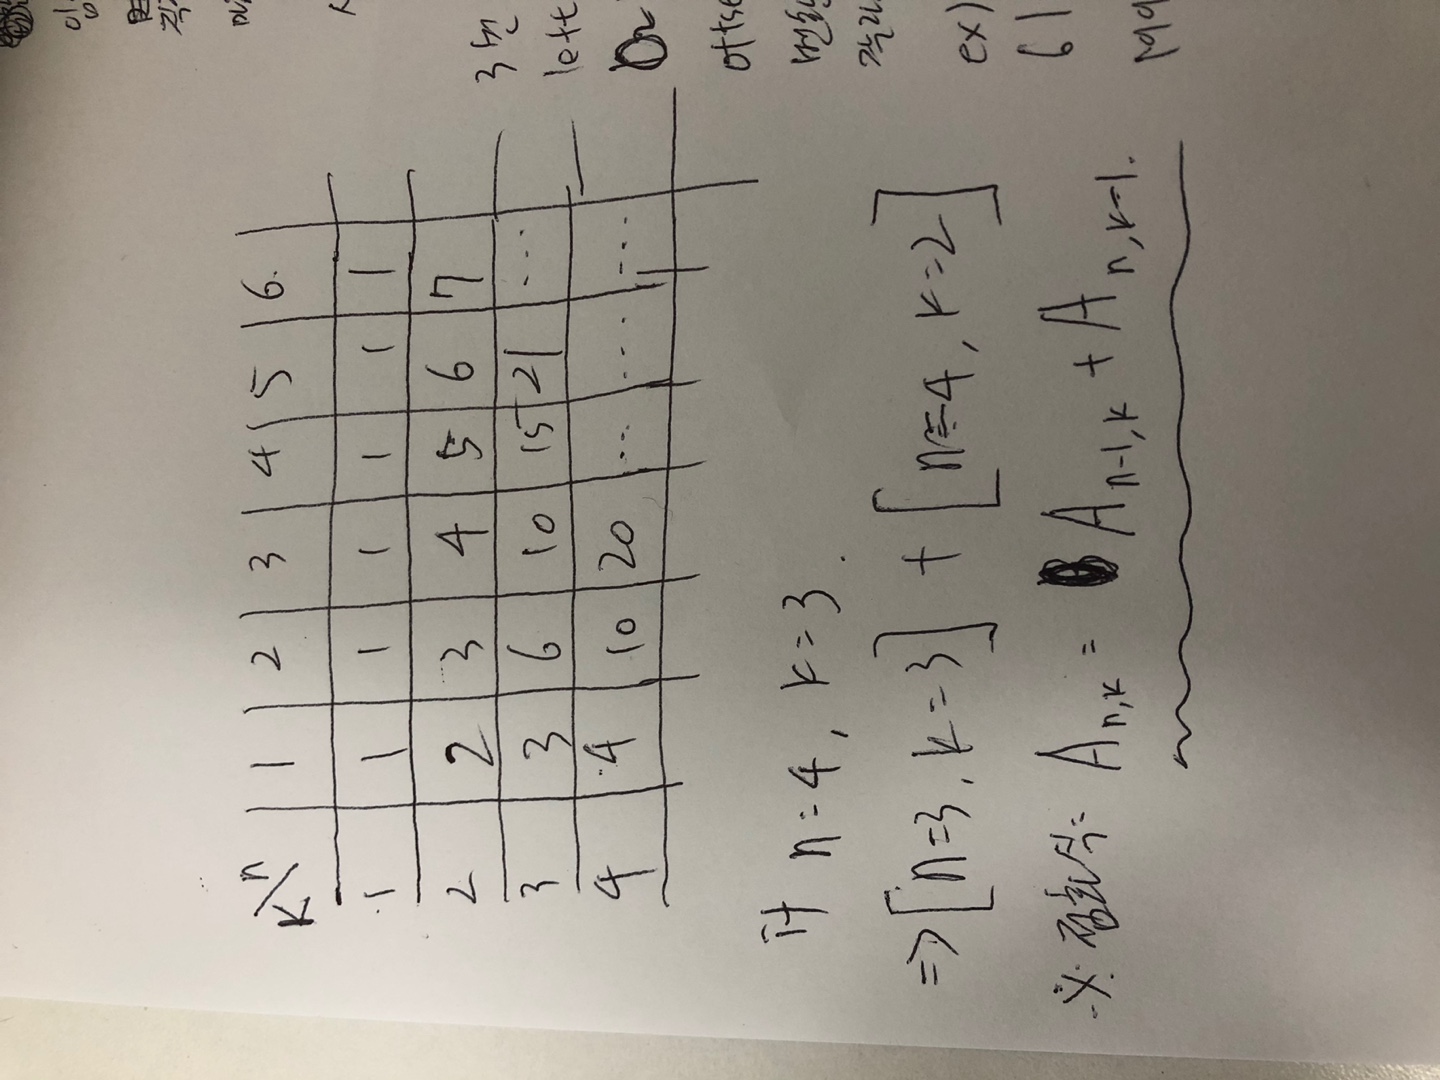 K\n 1 2 3 4 5 6.
1 1 1 1 1 1 1
2 2 3 4 5 6 7
3 3 6 10 15 21 ...
4 4 10 20 ... ... ...
if n=4, k=3.
=> [n=3, k=3] + [n=4, k=2]
※ 점화식: A n,k = A n-1,k + A n,k-1.
3번
lett
Or
offse
번환
ex)
61